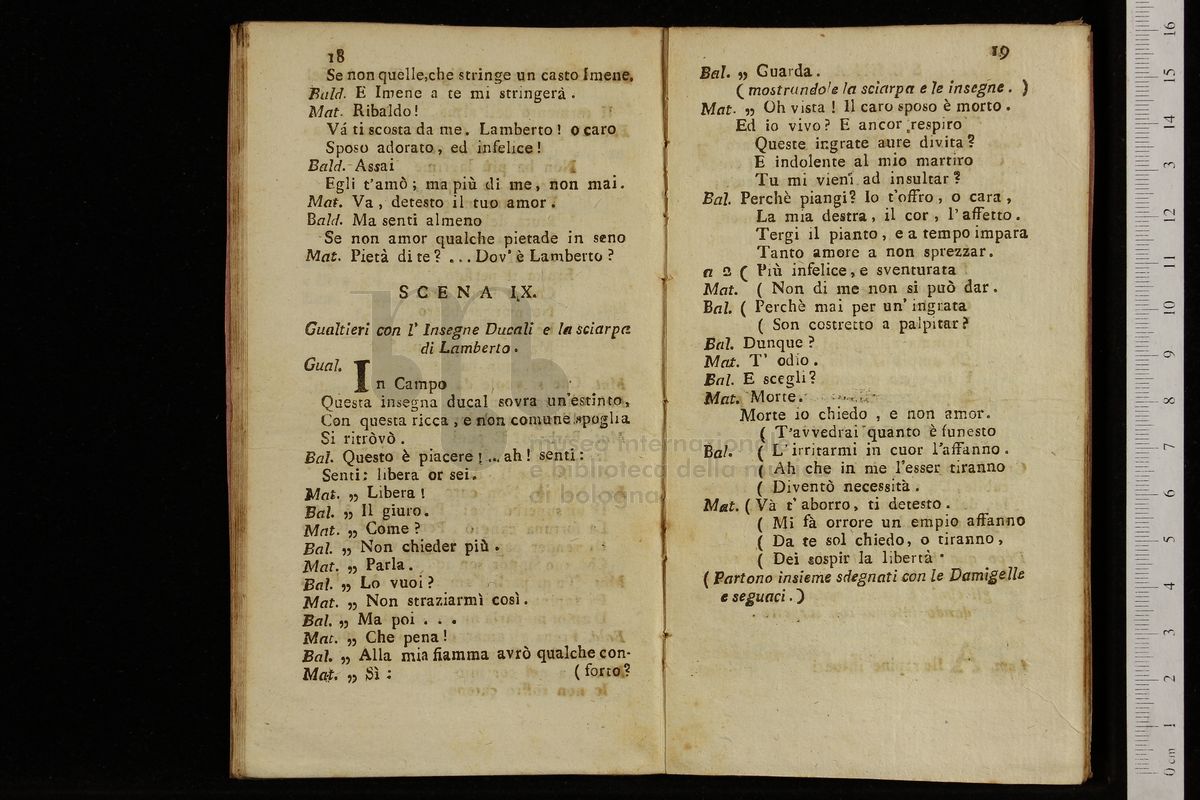 18
Se non quelle, che stringe un casto Imene.
Bald. E Imene a te mi stringerà.
Mat. Ribaldo!
Vá ti scosta da me. Lamberto! o caro
Sposo adorato, ed infelice!
Bald. Assai
Egli t'amò; ma più di me, non mai.
Mat. Va, detesto il tuo amor.
Bald. Ma senti almeno
Se non amor qualche pietade in seno
Mat. Pietà di te? ... Dov' è Lamberto?
SCENA IX.
Gualtieri con l' Insegne Ducali e la sciarpa
di Lamberto.
Gual. In Campo
Questa insegna ducal sovra un'estinto,
Con questa ricca, e non comune spoglia
Si ritròvò.
Bal. Questo è piacere! ... ah! senti:
Senti: libera or sei.
Mat. „ Libera!
Bal. „ Il giuro.
Mat. „ Come?
Bal. „ Non chieder più.
Mat. „ Parla.
Bal. „ Lo vuoi?
Mat. „ Non straziarmi così.
Bal. „ Ma poi . . .
Mat. „ Che pena!
Bal. „ Alla mia fiamma avrò qualche con-
Mat. „ Sì: (forto?
19
Bal. „ Guarda.
(mostrando'e la sciarpa e le insegne.)
Mat. „ Oh vista! Il caro sposo è morto.
Ed io vivo? E ancor respiro
Queste ingrate aure divita?
E indolente al mio martiro
Tu mi vieni ad insultar?
Bal. Perchè piangi? Io t'offro, o cara,
La mia destra, il cor, l'affetto.
Tergi il pianto, e a tempo impara
Tanto amore a non sprezzar.
a 2 ( Più infelice, e sventurata
Mat. ( Non di me non si può dar.
Bal. ( Perchè mai per un' ingrata
( Son costretto a palpitar?
Bal. Dunque?
Mat. T' odio.
Bal. E scegli?
Mat. Morte.
Morte io chiedo, e non amor.
( T'avvedrai quanto è funesto
Bal. ( L'irritarmi in cuor l'affanno.
( Ah che in me l'esser tiranno
( Diventò necessità.
Mat. ( Và t'aborro, ti detesto.
( Mi fà orrore un empio affanno
( Da te sol chiedo, o tiranno,
( Dei sospir la libertà.
(Partono insieme sdegnati con le Damigelle
e seguaci.)
museo internazionale
e biblioteca della musica
di bologna
0 cm 1 2 3 4 5 6 7 8 9 10 11 12 13 14 15 16